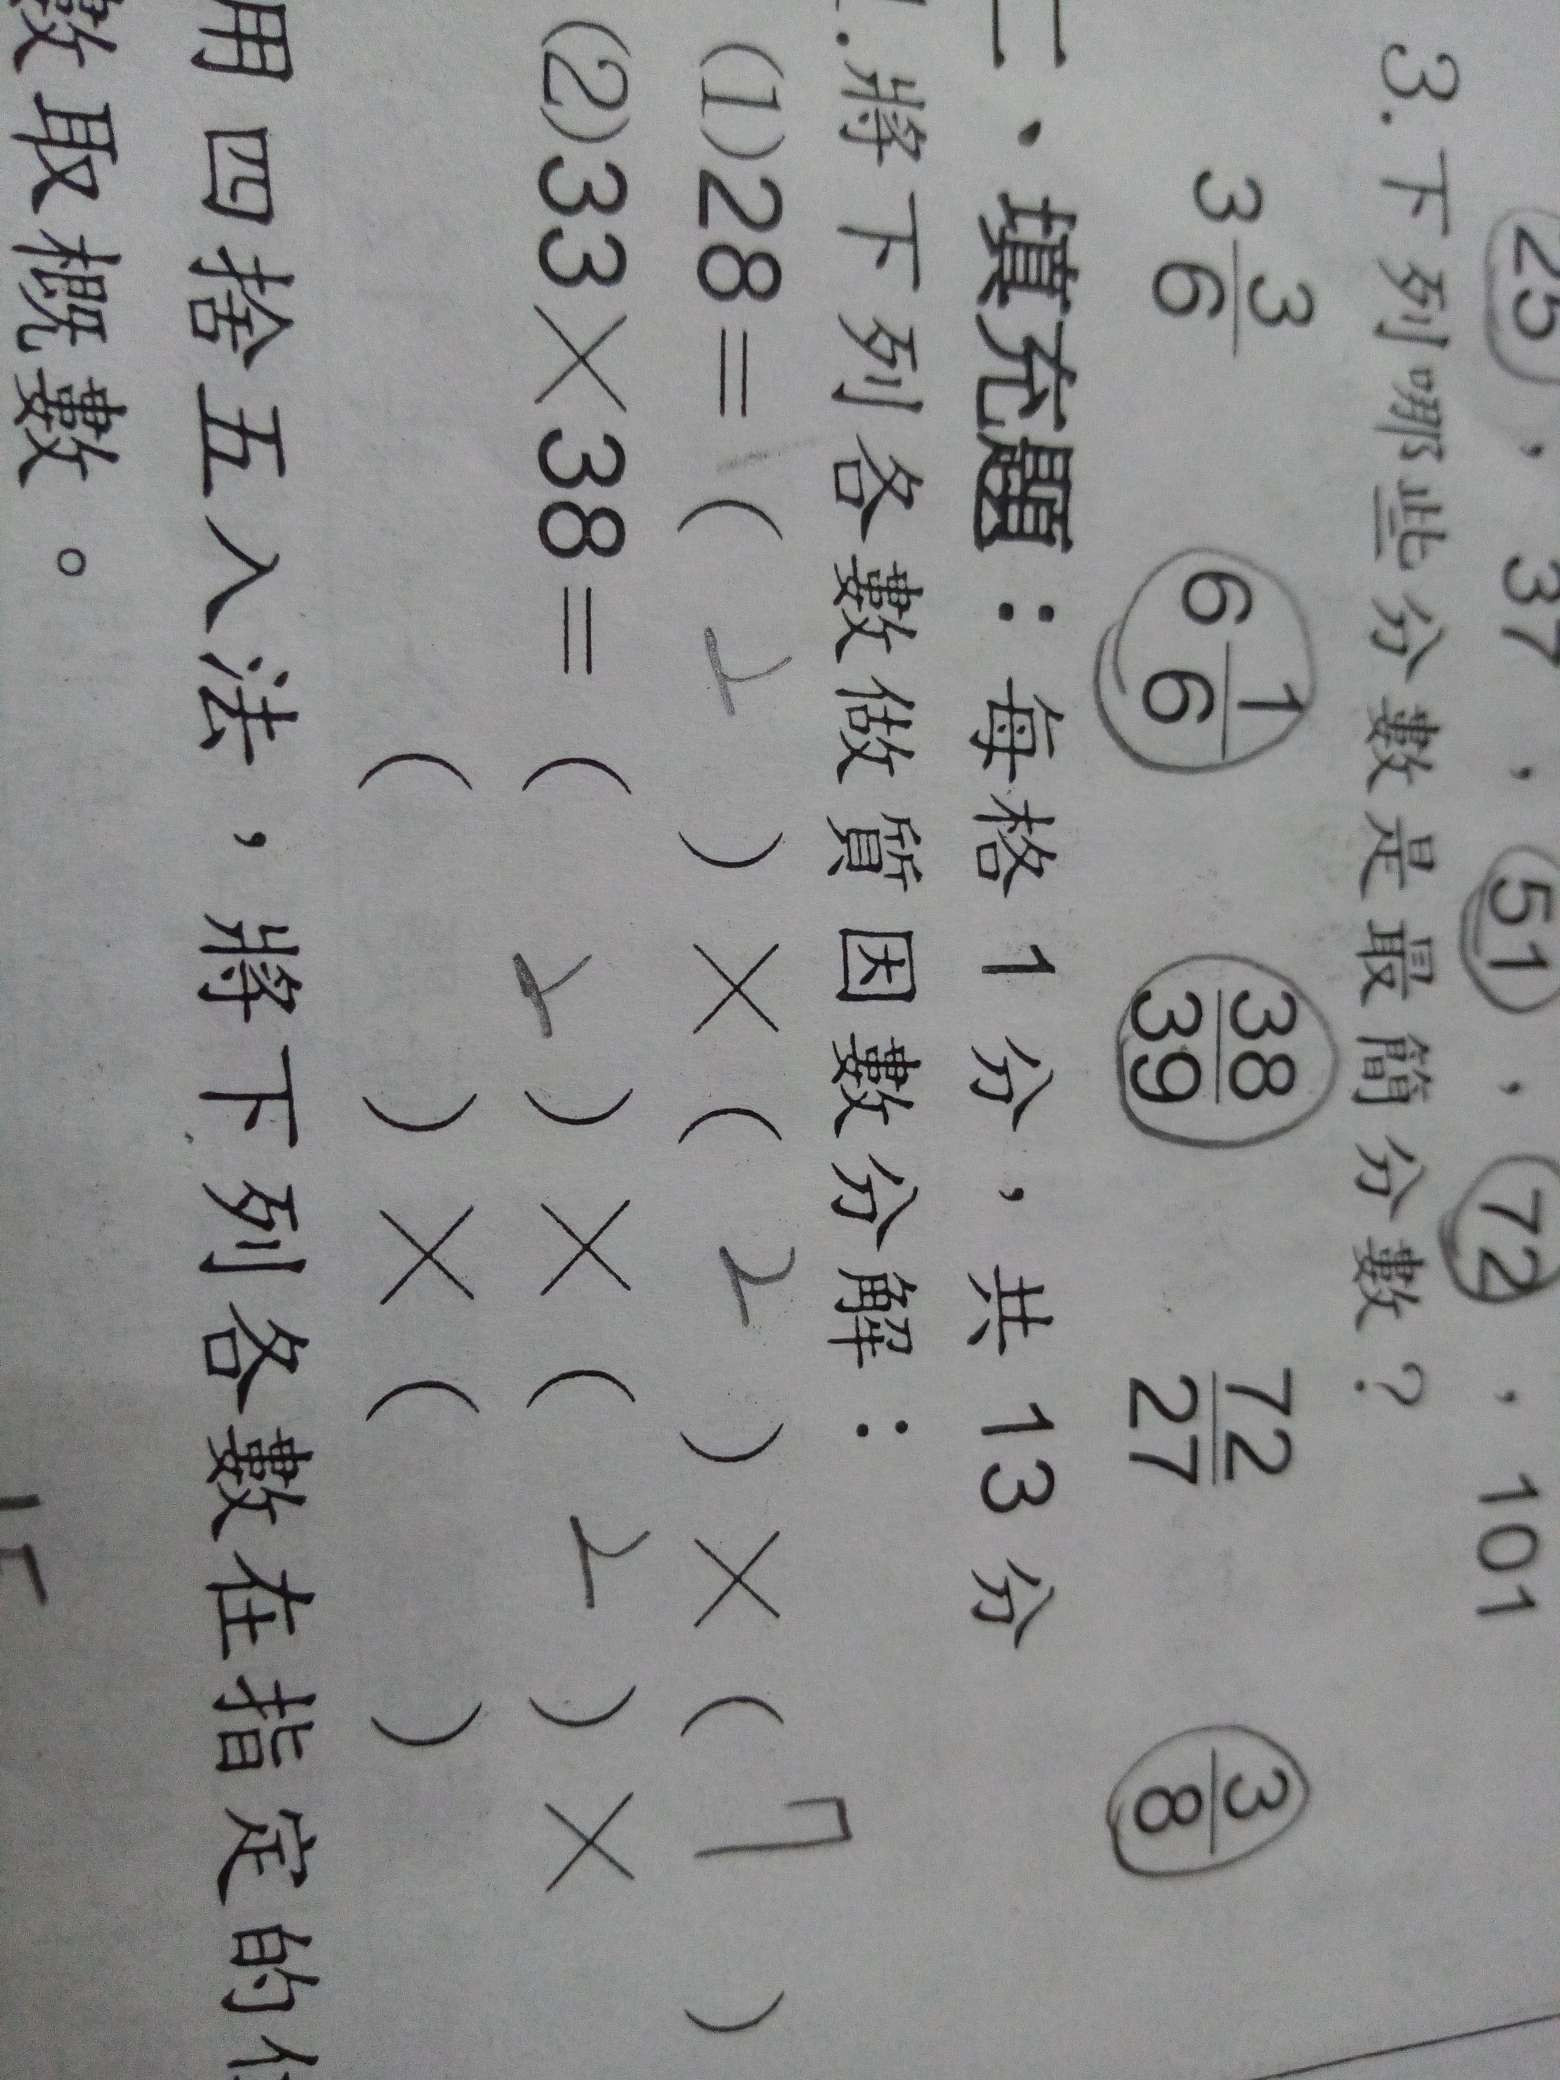 25 , 37 , 51 , 72 , 101
3. 下列哪些分數是最簡分數?
3 3/6 6 1/6 38/39 72/27 3/8
二、填充題:每格1分,共13分
1.將下列各數做質因數分解:
(1)28=( 2 )×( 2 )×( 7 )
(2)33×38=( 2 )×( 2 )×
( )×( )
用四捨五入法,將下列各數在指定的
數取概數。
15